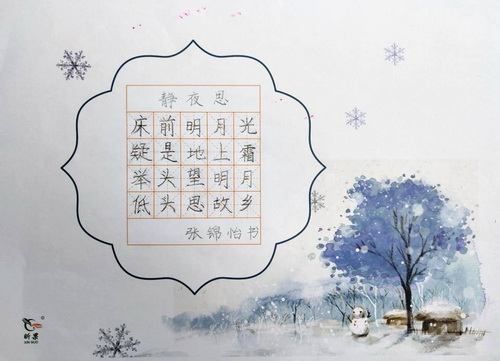 静夜思
床前明月光
疑是地上霜
举头望明月
低头思故乡
张锦怡书
昕果